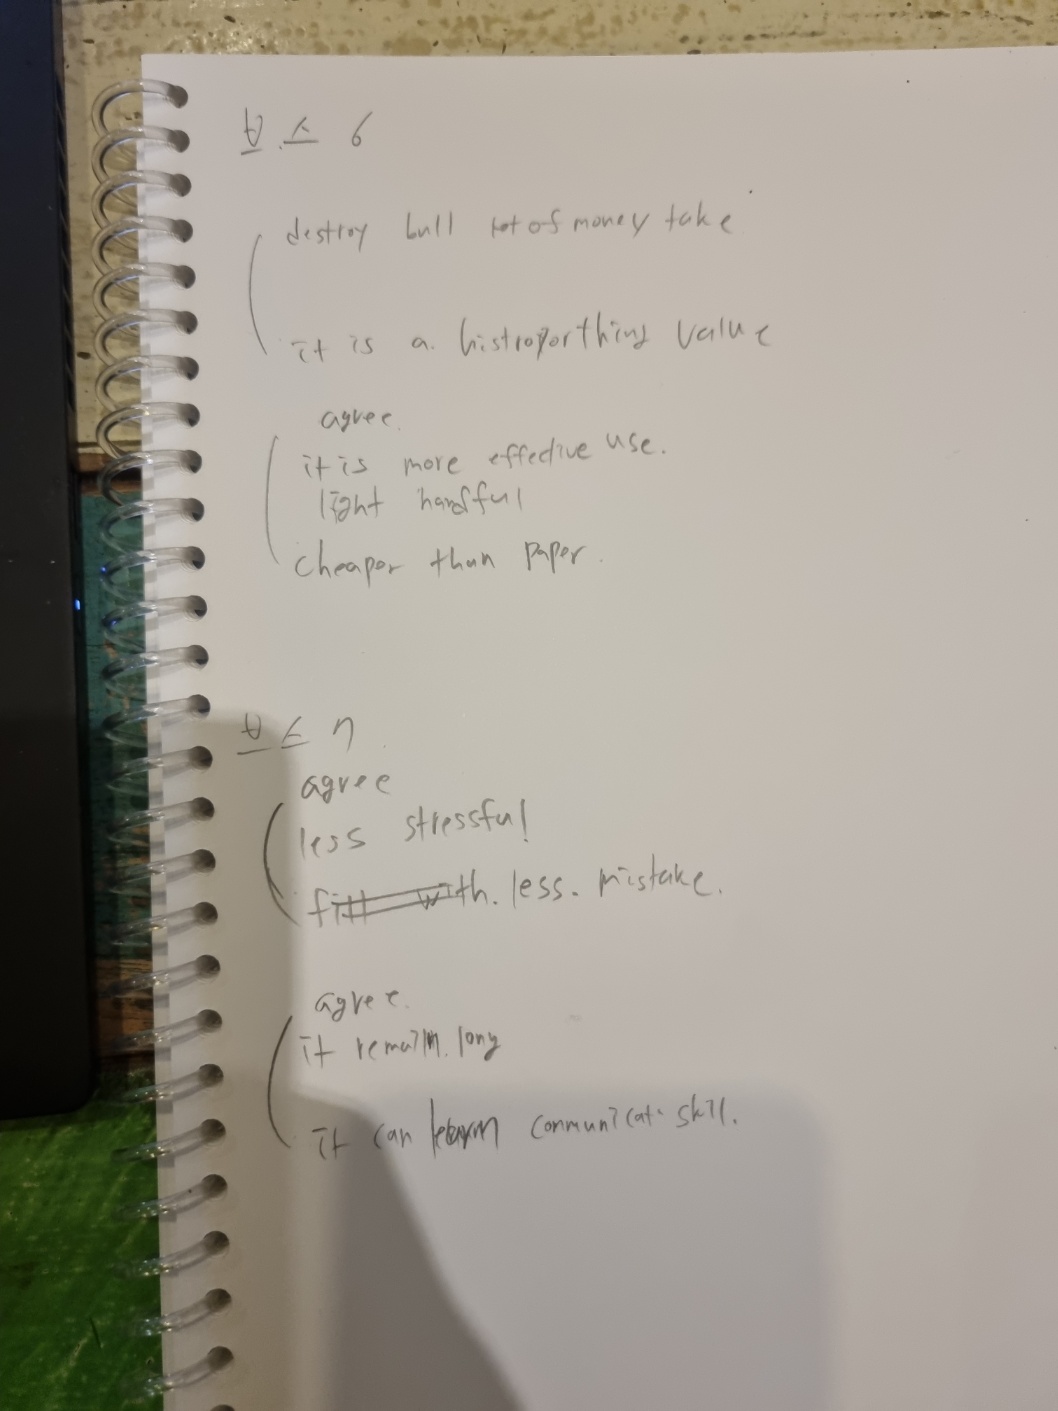 보스 6
destroy bull lot of money take
it is a histroporthing value
agree.
it is more effective use.
light handful
cheaper than paper.
보스 7
agree
less stressful
less. mistake.
agree.
it remain. long
it can learn communicat skill.